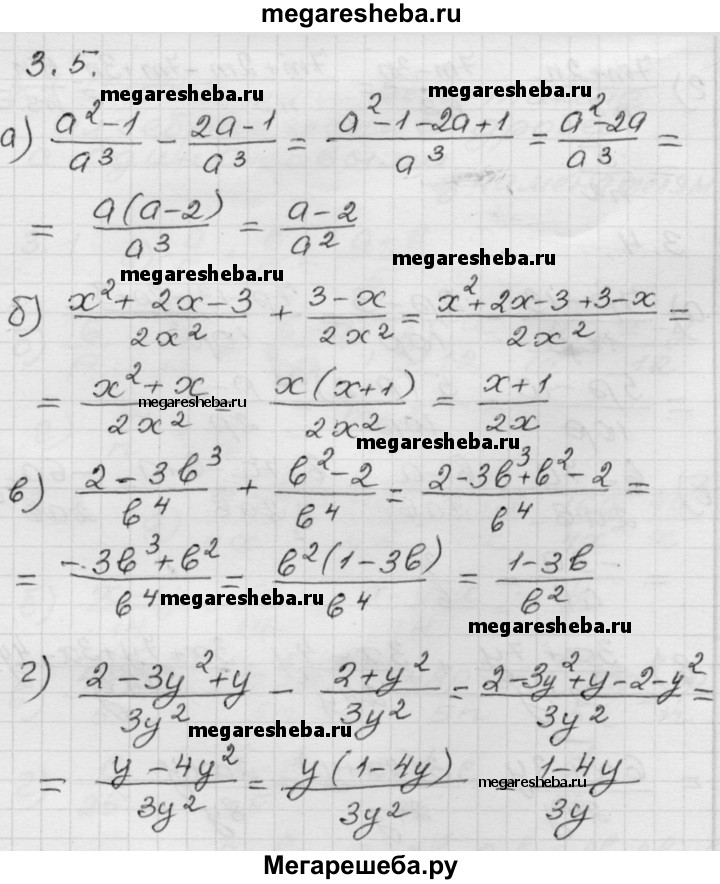 megaresheba.ru
3.5.
megaresheba.ru megaresheba.ru
а) (a²-1)/a³ - (2a-1)/a³ = (a²-1-2a+1)/a³ = (a²-2a)/a³ =
= a(a-2)/a³ = (a-2)/a²
megaresheba.ru
megaresheba.ru
б) (x²+2x-3)/2x² + (3-x)/2x² = (x²+2x-3+3-x)/2x² =
= (x²+x)/2x² = x(x+1)/2x² = (x+1)/2x
megaresheba.ru
megaresheba.ru
в) (2-3b³)/b⁴ + (b²-2)/b⁴ = (2-3b³+b²-2)/b⁴ =
= (-3b³+b²)/b⁴ = b²(1-3b)/b⁴ = (1-3b)/b²
megaresheba.ru
megaresheba.ru
г) (2-3y²+y)/3y² - (2+y²)/3y² = (2-3y²+y-2-y²)/3y² =
megaresheba.ru
= (y-4y²)/3y² = y(1-4y)/3y² = (1-4y)/3y
megaresheba.ru
Мегарешеба.ру